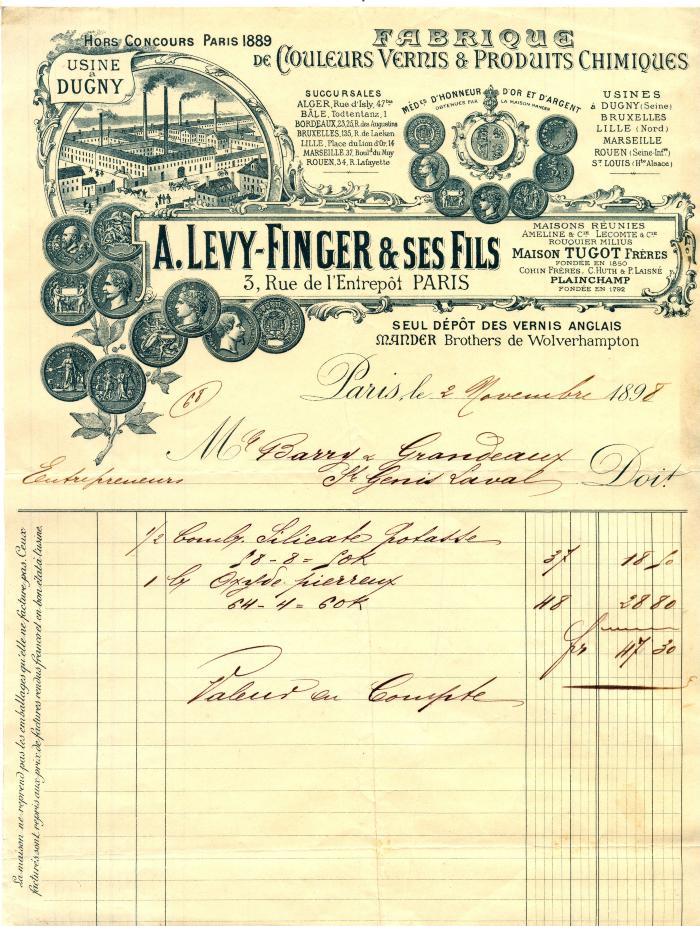 HORS CONCOURS PARIS 1889
USINE
à
DUGNY
FABRIQUE
DE COULEURS VERNIS & PRODUITS CHIMIQUES
SUCCURSALES
ALGER, Rue d'Isly, 47bis
BÂLE, Todtentanz, 1
BORDEAUX, 23, 25, R. des Augustins
BRUXELLES, 135, R. de Laeken
LILLE, Place du Lion d'Or, 14
MARSEILLE, 37, Bould. du Muy
ROUEN, 34, R. Lafayette
MÉDES D'HONNEUR D'OR ET D'ARGENT
OBTENUES PAR LA MAISON MANDER
USINES
à DUGNY (Seine)
BRUXELLES
LILLE (Nord)
MARSEILLE
ROUEN (Seine-Infre)
ST LOUIS (Hte Alsace)
A. LEVY-FINGER & SES FILS
3, Rue de l'Entrepôt PARIS
MAISONS RÉUNIES
AMELINE & Cie LECOMTE & Cie
ROUQUIER MILIUS
MAISON TUGOT FRÈRES
FONDÉE EN 1850
COHIN FRÈRES, C. HUTH & P. LAISNÉ
PLAINCHAMP
FONDÉE EN 1792
SEUL DÉPÔT DES VERNIS ANGLAIS
MANDER Brothers de Wolverhampton
Paris, le 2 Novembre 1898
68
Mr Barry & Grandeaux
Entrepreneurs St Genis Laval Doit
1/2 Silicate Potasse
58 - 8 = 50k 37 18 50
1 Oxyde pierreux
64 - 4 = 60k 48 28 80
fr 47 30
Valeur en Compte
La maison ne reprend pas les emballages qu'elle ne facture pas. Ceux
facturés sont repris aux prix de factures rendus franco et en bon état à l'usine.